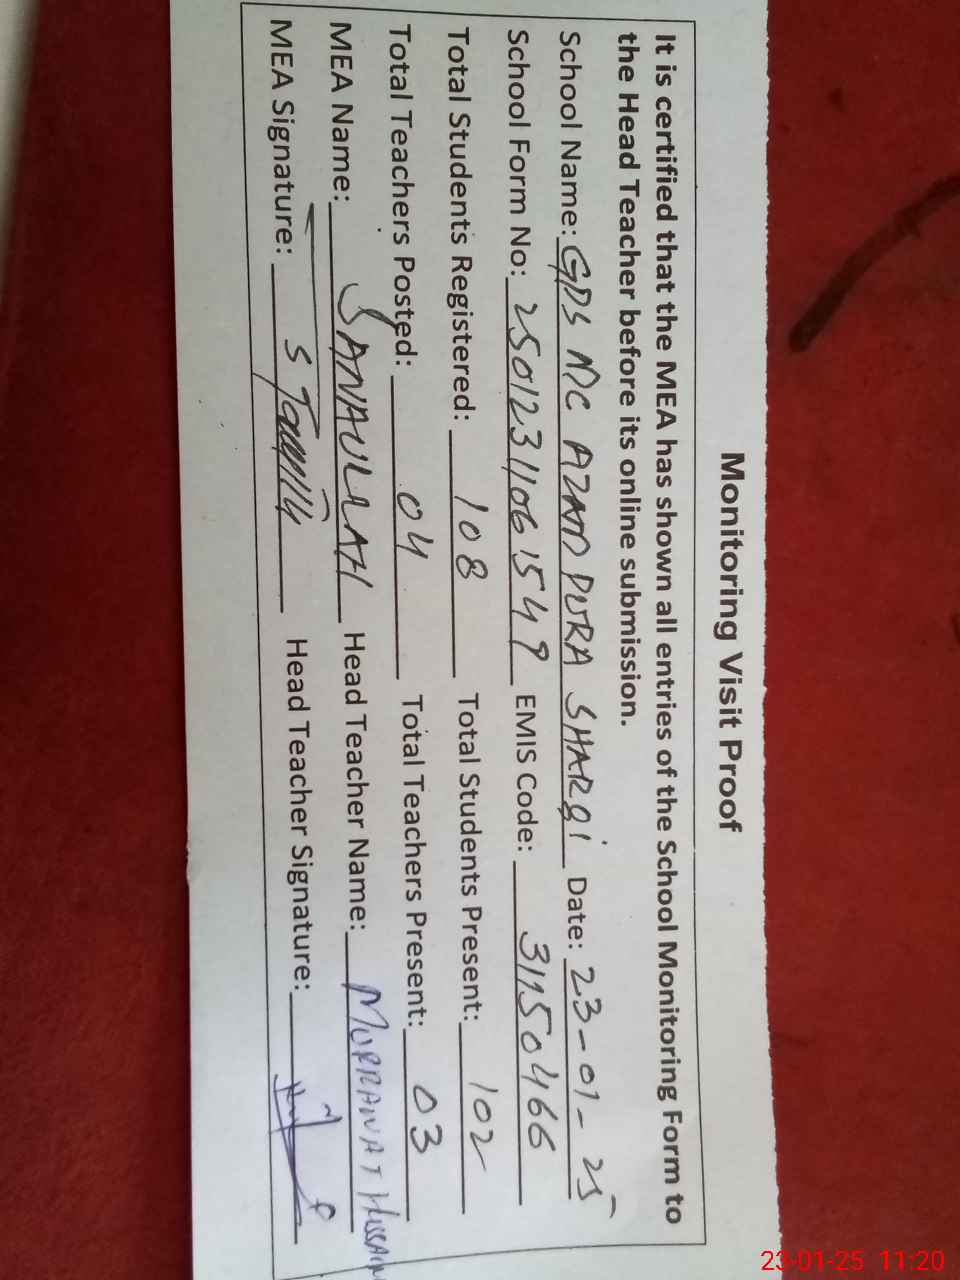 Monitoring Visit Proof
It is certified that the MEA has shown all entries of the School Monitoring Form to
the Head Teacher before its online submission.
School Name: GPS MC AZAM PURA SHARQI Date: 23-01-25
School Form No: 25012311061549 EMIS Code: 31150466
Total Students Registered: 108 Total Students Present: 102
Total Teachers Posted: 04 Total Teachers Present: 03
MEA Name: SANAULLAH Head Teacher Name: HUSSAIN
MEA Signature: Head Teacher Signature:
23-01-25 11:20